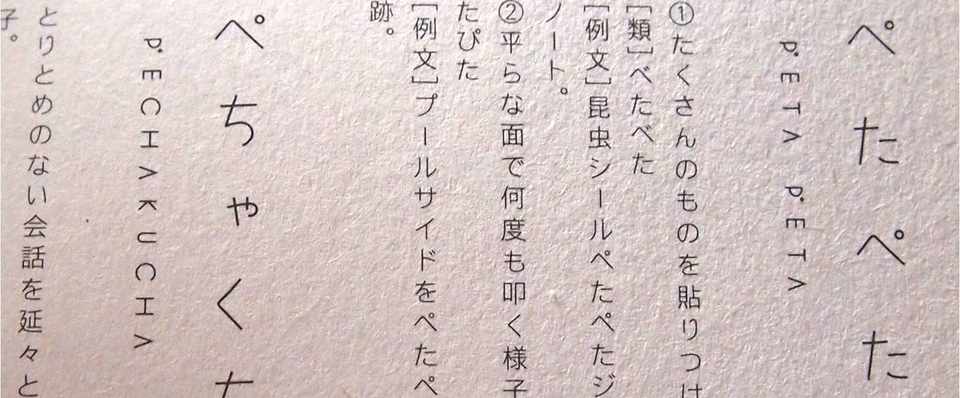 ぺたぺた
PETA PETA
①たくさんのものを貼りつけ
[類]べたべた
[例文]昆虫シールぺたぺたジ
ノート。
②平らな面で何度も叩く様子
たぴた
[例文]プールサイドをぺたぺ
跡。
ぺちゃくち
PECHAKUCHA
とりとめのない会話を延々と
子。